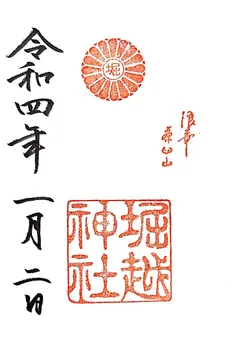 浪華
茶臼山
堀
堀越
神社
令和四年 一月二日